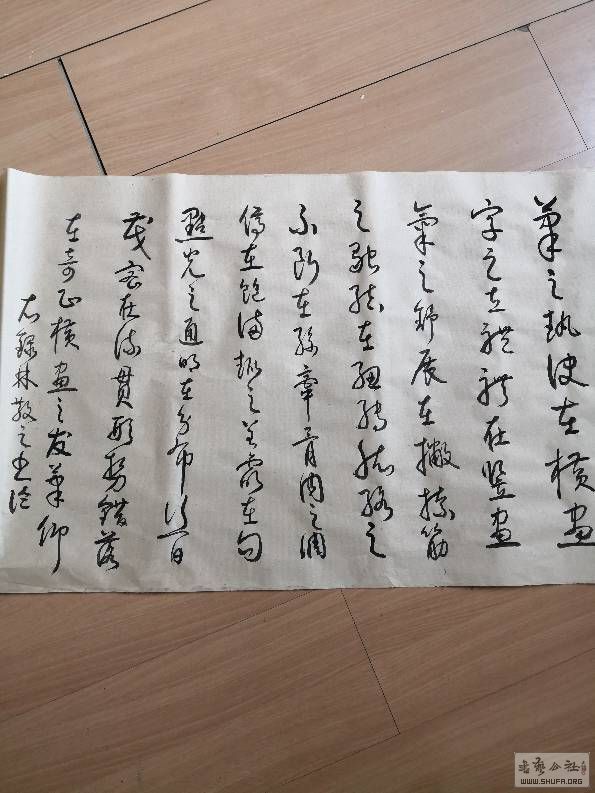 筆之執使在橫畫
字之立體在竖畫
氣之舒展在撇捺筋
之融結在纽轉脉絡之
不断在絲牽骨肉之调
停在飽满趣之呈露在勾
點光之通明在分布行间
茂密在流貫形势錯落
在奇正橫畫之发筆仰
右録林散之书论
书艺公社
WWW.SHUFA.ORG